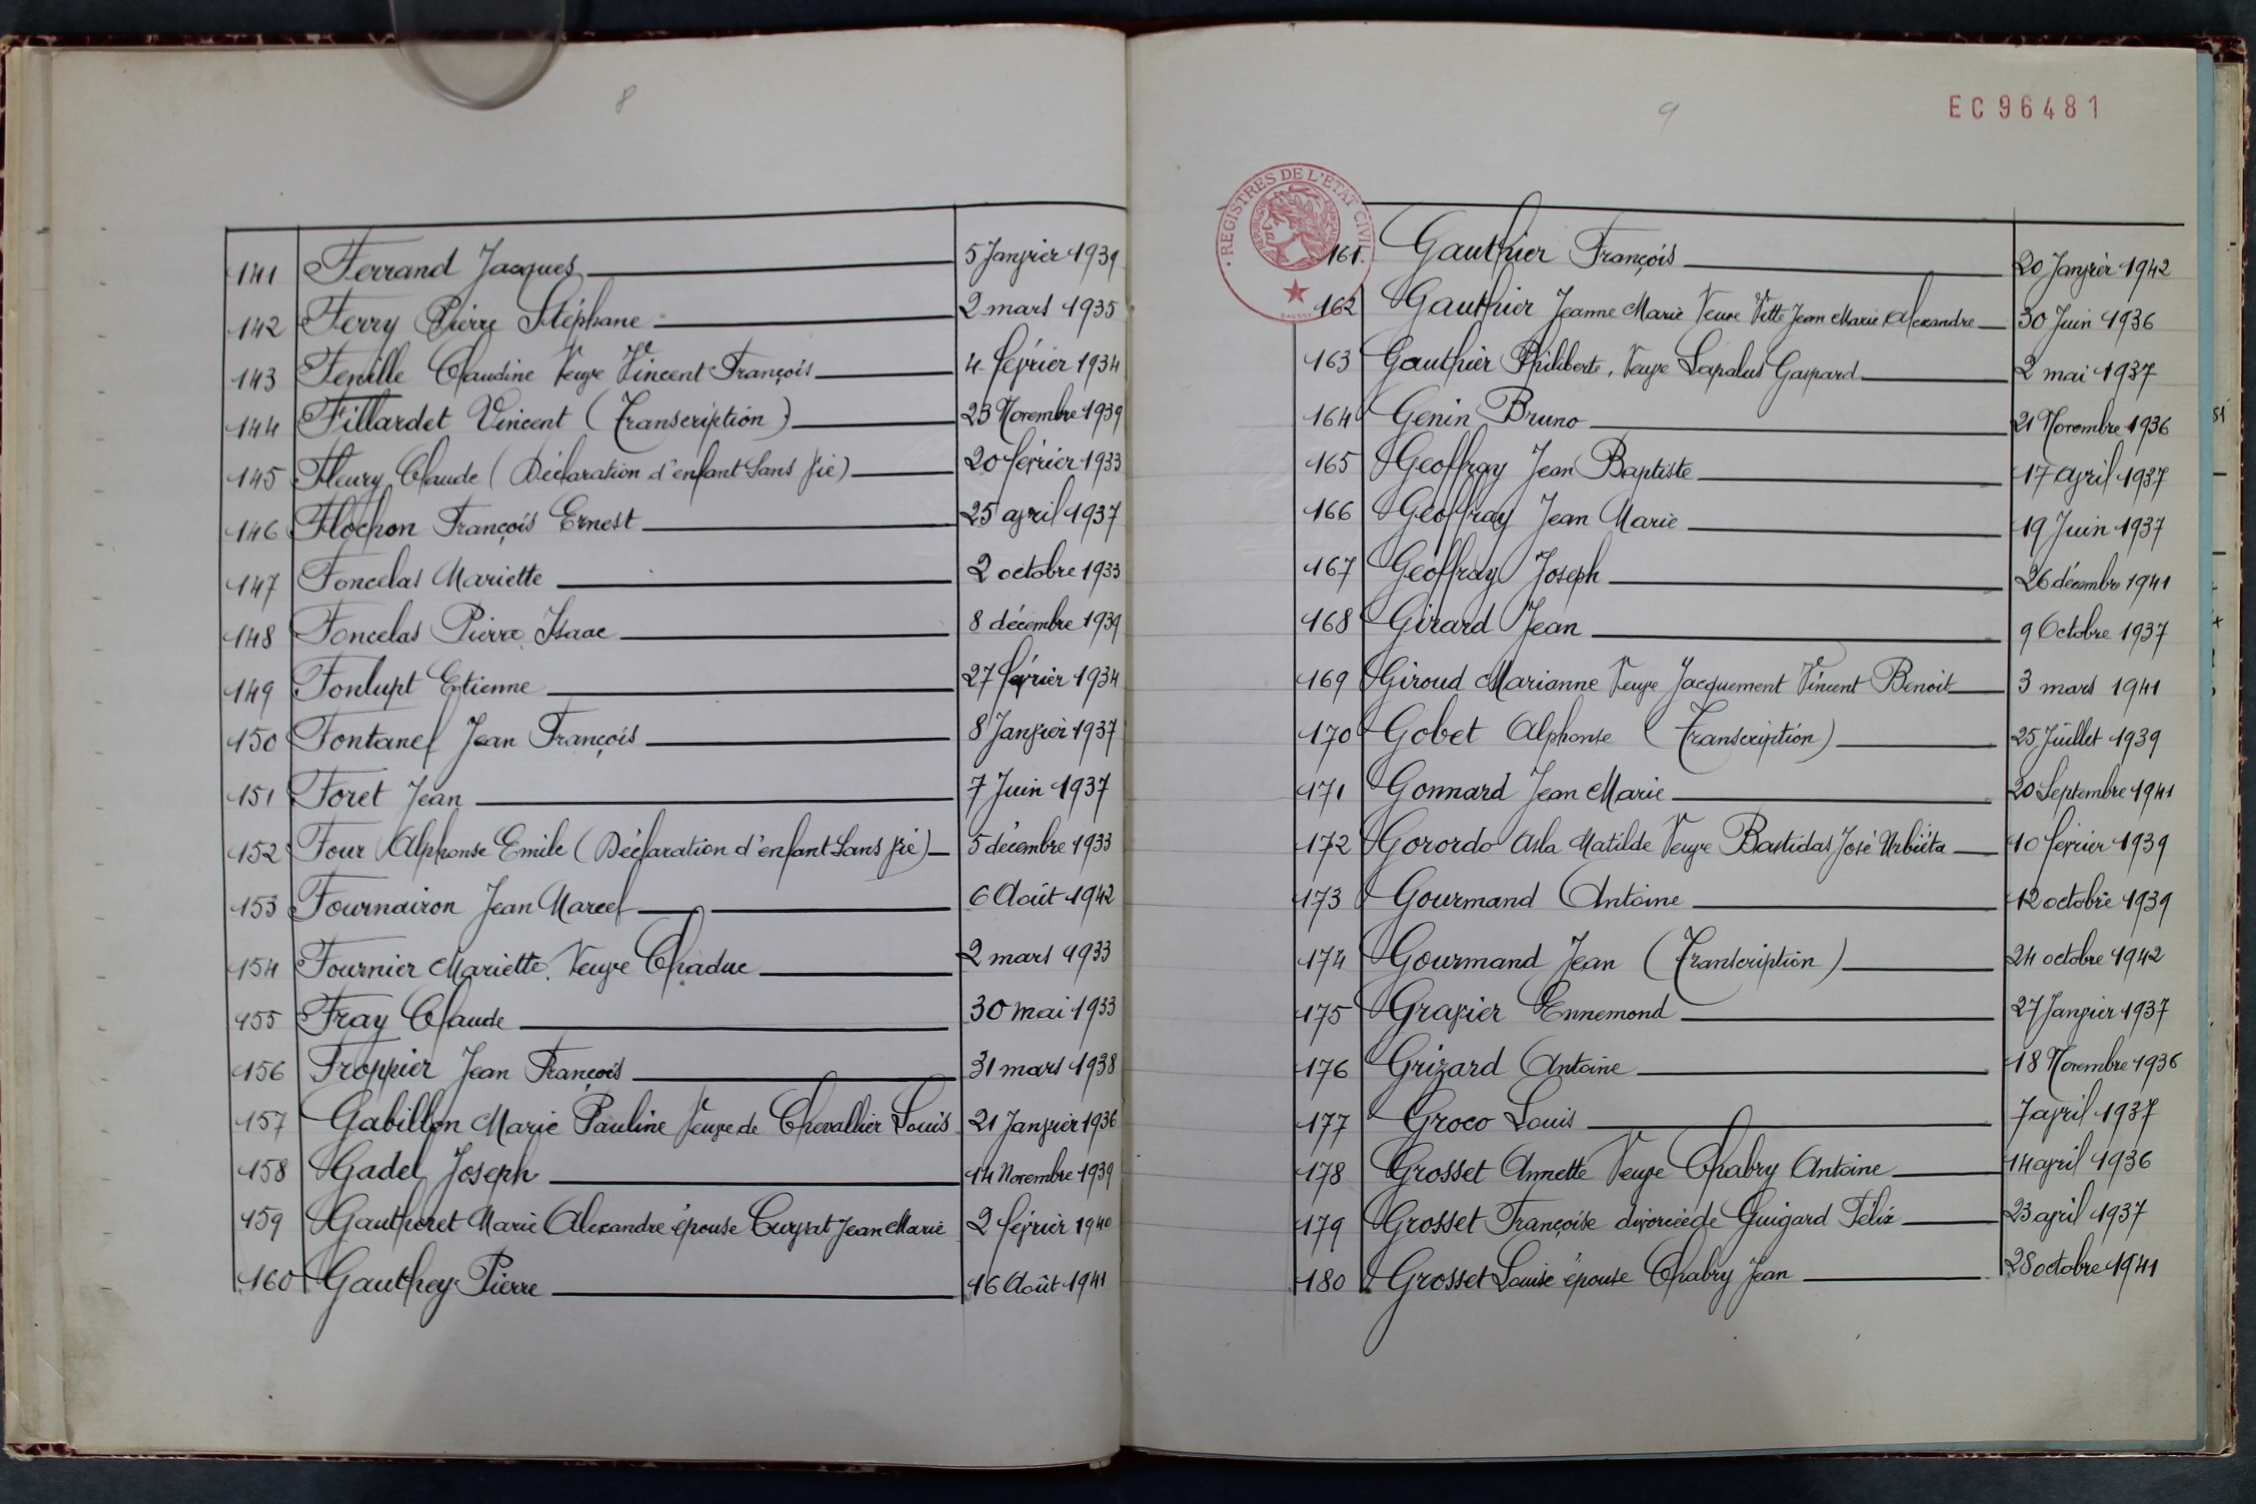 8
141 Ferrand Jacques 5 Janvier 1939
142 Ferry Pierre Stéphane 2 mars 1935
143 Feuille Claudine Veuve Vincent François 4 février 1934
144 Fillardet Vincent (Transcription) 23 Novembre 1939
145 Fleury Claude (Déclaration d'enfant sans vie) 20 février 1933
146 Flochon François Ernest 25 avril 1937
147 Foncelas Mariette 2 octobre 1933
148 Foncelas Pierre Isaac 8 décembre 1939
149 Fonlupt Etienne 27 février 1934
150 Fontanel Jean François 8 Janvier 1937
151 Foret Jean 7 Juin 1937
152 Four Alphonse Emile (Déclaration d'enfant sans vie) 5 décembre 1933
153 Fournairon Jean Marcel 6 Août 1942
154 Fournier Mariette, Veuve Chaduc 2 mars 1933
155 Fray Claude 30 mai 1933
156 Froppier Jean François 31 mars 1938
157 Gabillon Marie Pauline Veuve de Chevallier Louis 21 Janvier 1936
158 Gadel Joseph 14 Novembre 1939
159 Gautheret Marie Alexandre épouse Curvat Jean Marie 2 février 1940
160 Gauthey Pierre 16 Août 1941
9
EC96481
REGISTRES DE L'ETAT CIVIL
161. Gauthier François 20 Janvier 1942
162 Gauthier Jeanne Marie Veuve Vitte Jean Marie Alexandre 30 Juin 1936
163 Gauthier Philiberte, Veuve Lapalus Gaspard 2 mai 1937
164 Genin Bruno 21 Novembre 1936
165 Geoffray Jean Baptiste 17 avril 1937
166 Geoffray Jean Marie 19 Juin 1937
167 Geoffray Joseph 26 décembre 1941
168 Girard Jean 9 Octobre 1937
169 Giroud Marianne Veuve Jacquement Vincent Benoit 3 mars 1941
170 Gobet Alphonse (Transcription) 25 Juillet 1939
171 Gonnard Jean Marie 20 Septembre 1941
172 Gorordo Asla Matilde Veuve Bastidas José Urbiéta 10 février 1939
173 Gourmand Antoine 12 octobre 1939
174 Gourmand Jean (Transcription) 24 octobre 1942
175 Gravier Ennemond 27 Janvier 1937
176 Grizard Antoine 18 Novembre 1936
177 Groco Louis 7 avril 1937
178 Grosset Annette Veuve Chabry Antoine 14 avril 1936
179 Grosset Françoise divorcée de Guigard Félix 23 avril 1937
180 Grosset Louise épouse Chabry Jean 28 octobre 1941